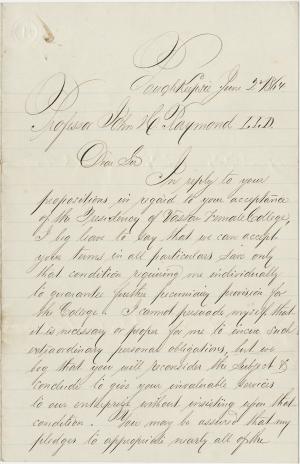 Poughkeepsie June 2d 1864
Professor John H. Raymond L.L.D.
Dear Sir
In reply to your
propositions in regard to your acceptance
of the Presidency of Vassar Female College,
I beg leave to say that we can accept
your terms in all particulars save only
that condition requiring me individually
to guarantee further pecuniary provision for
the College. I cannot persuade myself that
it is necessary or proper for me to incur such
extraordinary personal obligations, but we
beg that you will reconsider the subject &
conclude to give your invaluable services
to our enterprize without insisting upon that
condition. You may be assured that my
pledges to appropriate nearly all of the